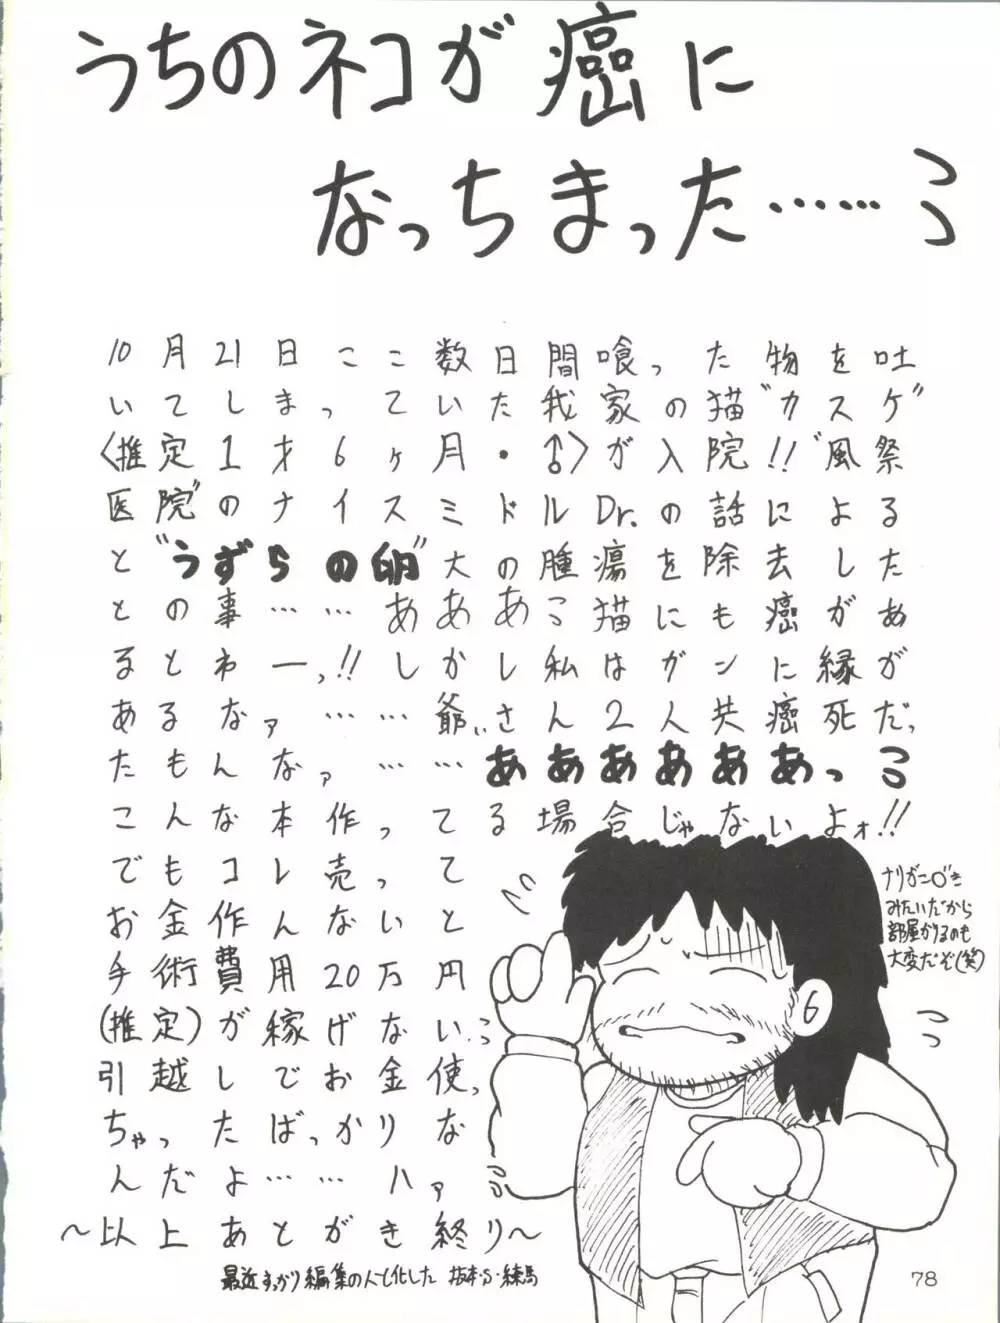 うちのネコが癌に
なっちまった……
10月21日ここ数日間喰った物を吐
いてしまっていた我家の猫"カスケ"
〈推定1才6ヶ月・♂〉が入院!!"風祭
医院"のナイスミドルDr.の話による
と"うずらの卵"大の腫瘍を除去した
との事……ああああこ猫にも癌があ
るとわーっ!!しかし私はガンに縁が
あるなァ……爺ぃさん2人共癌死だっ
たもんなァ……ああああああっ
こんな本作ってる場合じゃないよォ!!
でもコレ売って
お金作んないと
手術費用20万円
(推定)が稼げない
引越しでお金使っ
ちゃったばっかりな
んだよ……ハァ
〜以上あとがき終り〜
最近すっかり編集の人と化した
練馬
みたいだから
部屋かりるのも
大変だぞ(笑)
6
78